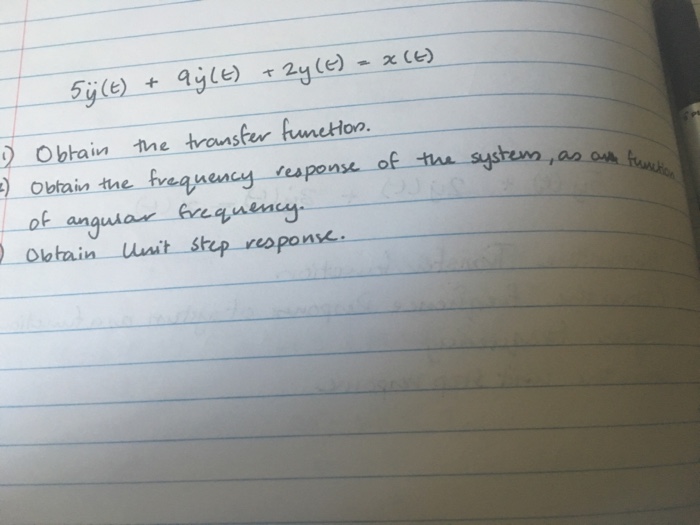 5ÿ(t) + 9ẏ(t) + 2y(t) = x(t)
) Obtain the transfer function.
) Obtain the frequency response of the system, as a function
of angular frequency.
) Obtain Unit step response.